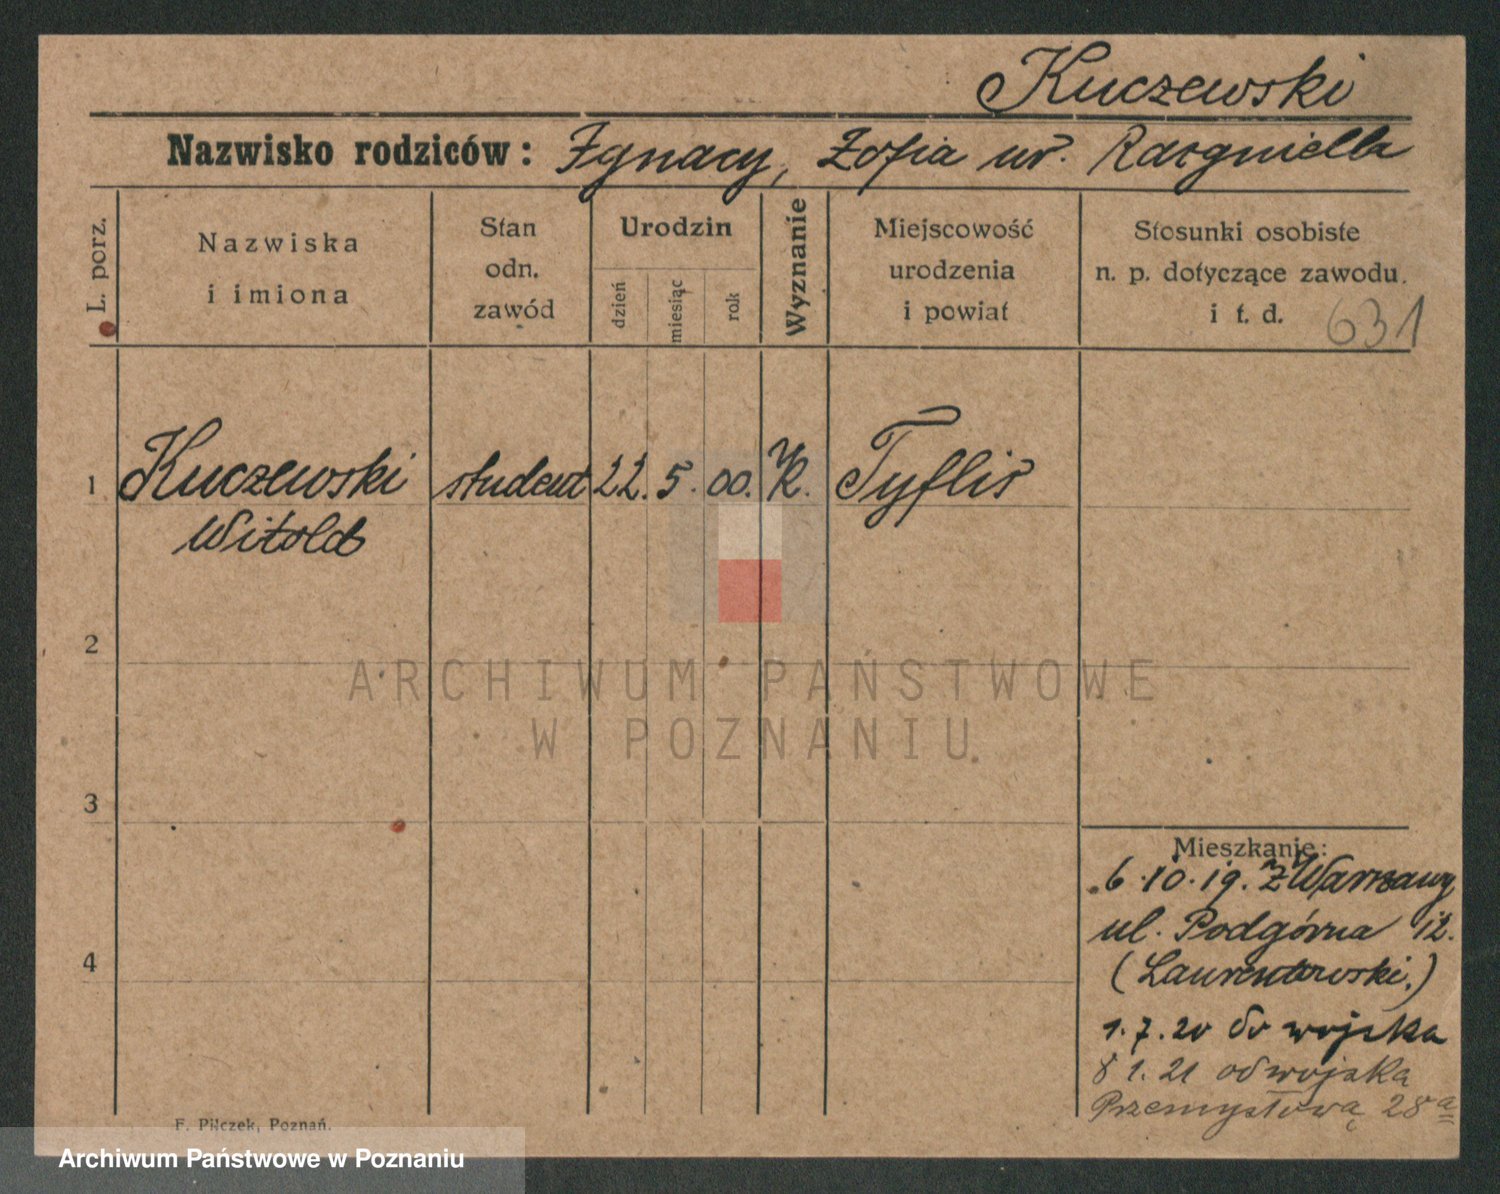 Kuczewski
Nazwisko rodziców: Ignacy, Zofia ur.
L. porz.
Nazwiska i imiona
Stan odn. zawód
Urodzin
dzień
miesiąc
rok
Wyznanie
Miejscowość urodzenia i powiat
Stosunki osobiste n. p. dotyczące zawodu. i t. d.
631
1 Kuczewski student 22. 5. 00. K. Tyflis
Witold
2
3
4
Mieszkanie:
6.10.19. z Warszawy
ul. Podgórna 12.
(Laurentowski.)
1.7.20 do wojska
8 1.21 od wojska
Przemysłowa 28a
F. Pilczek, Poznań.
ARCHIWUM PAŃSTWOWE
W POZNANIU
Archiwum Państwowe w Poznaniu